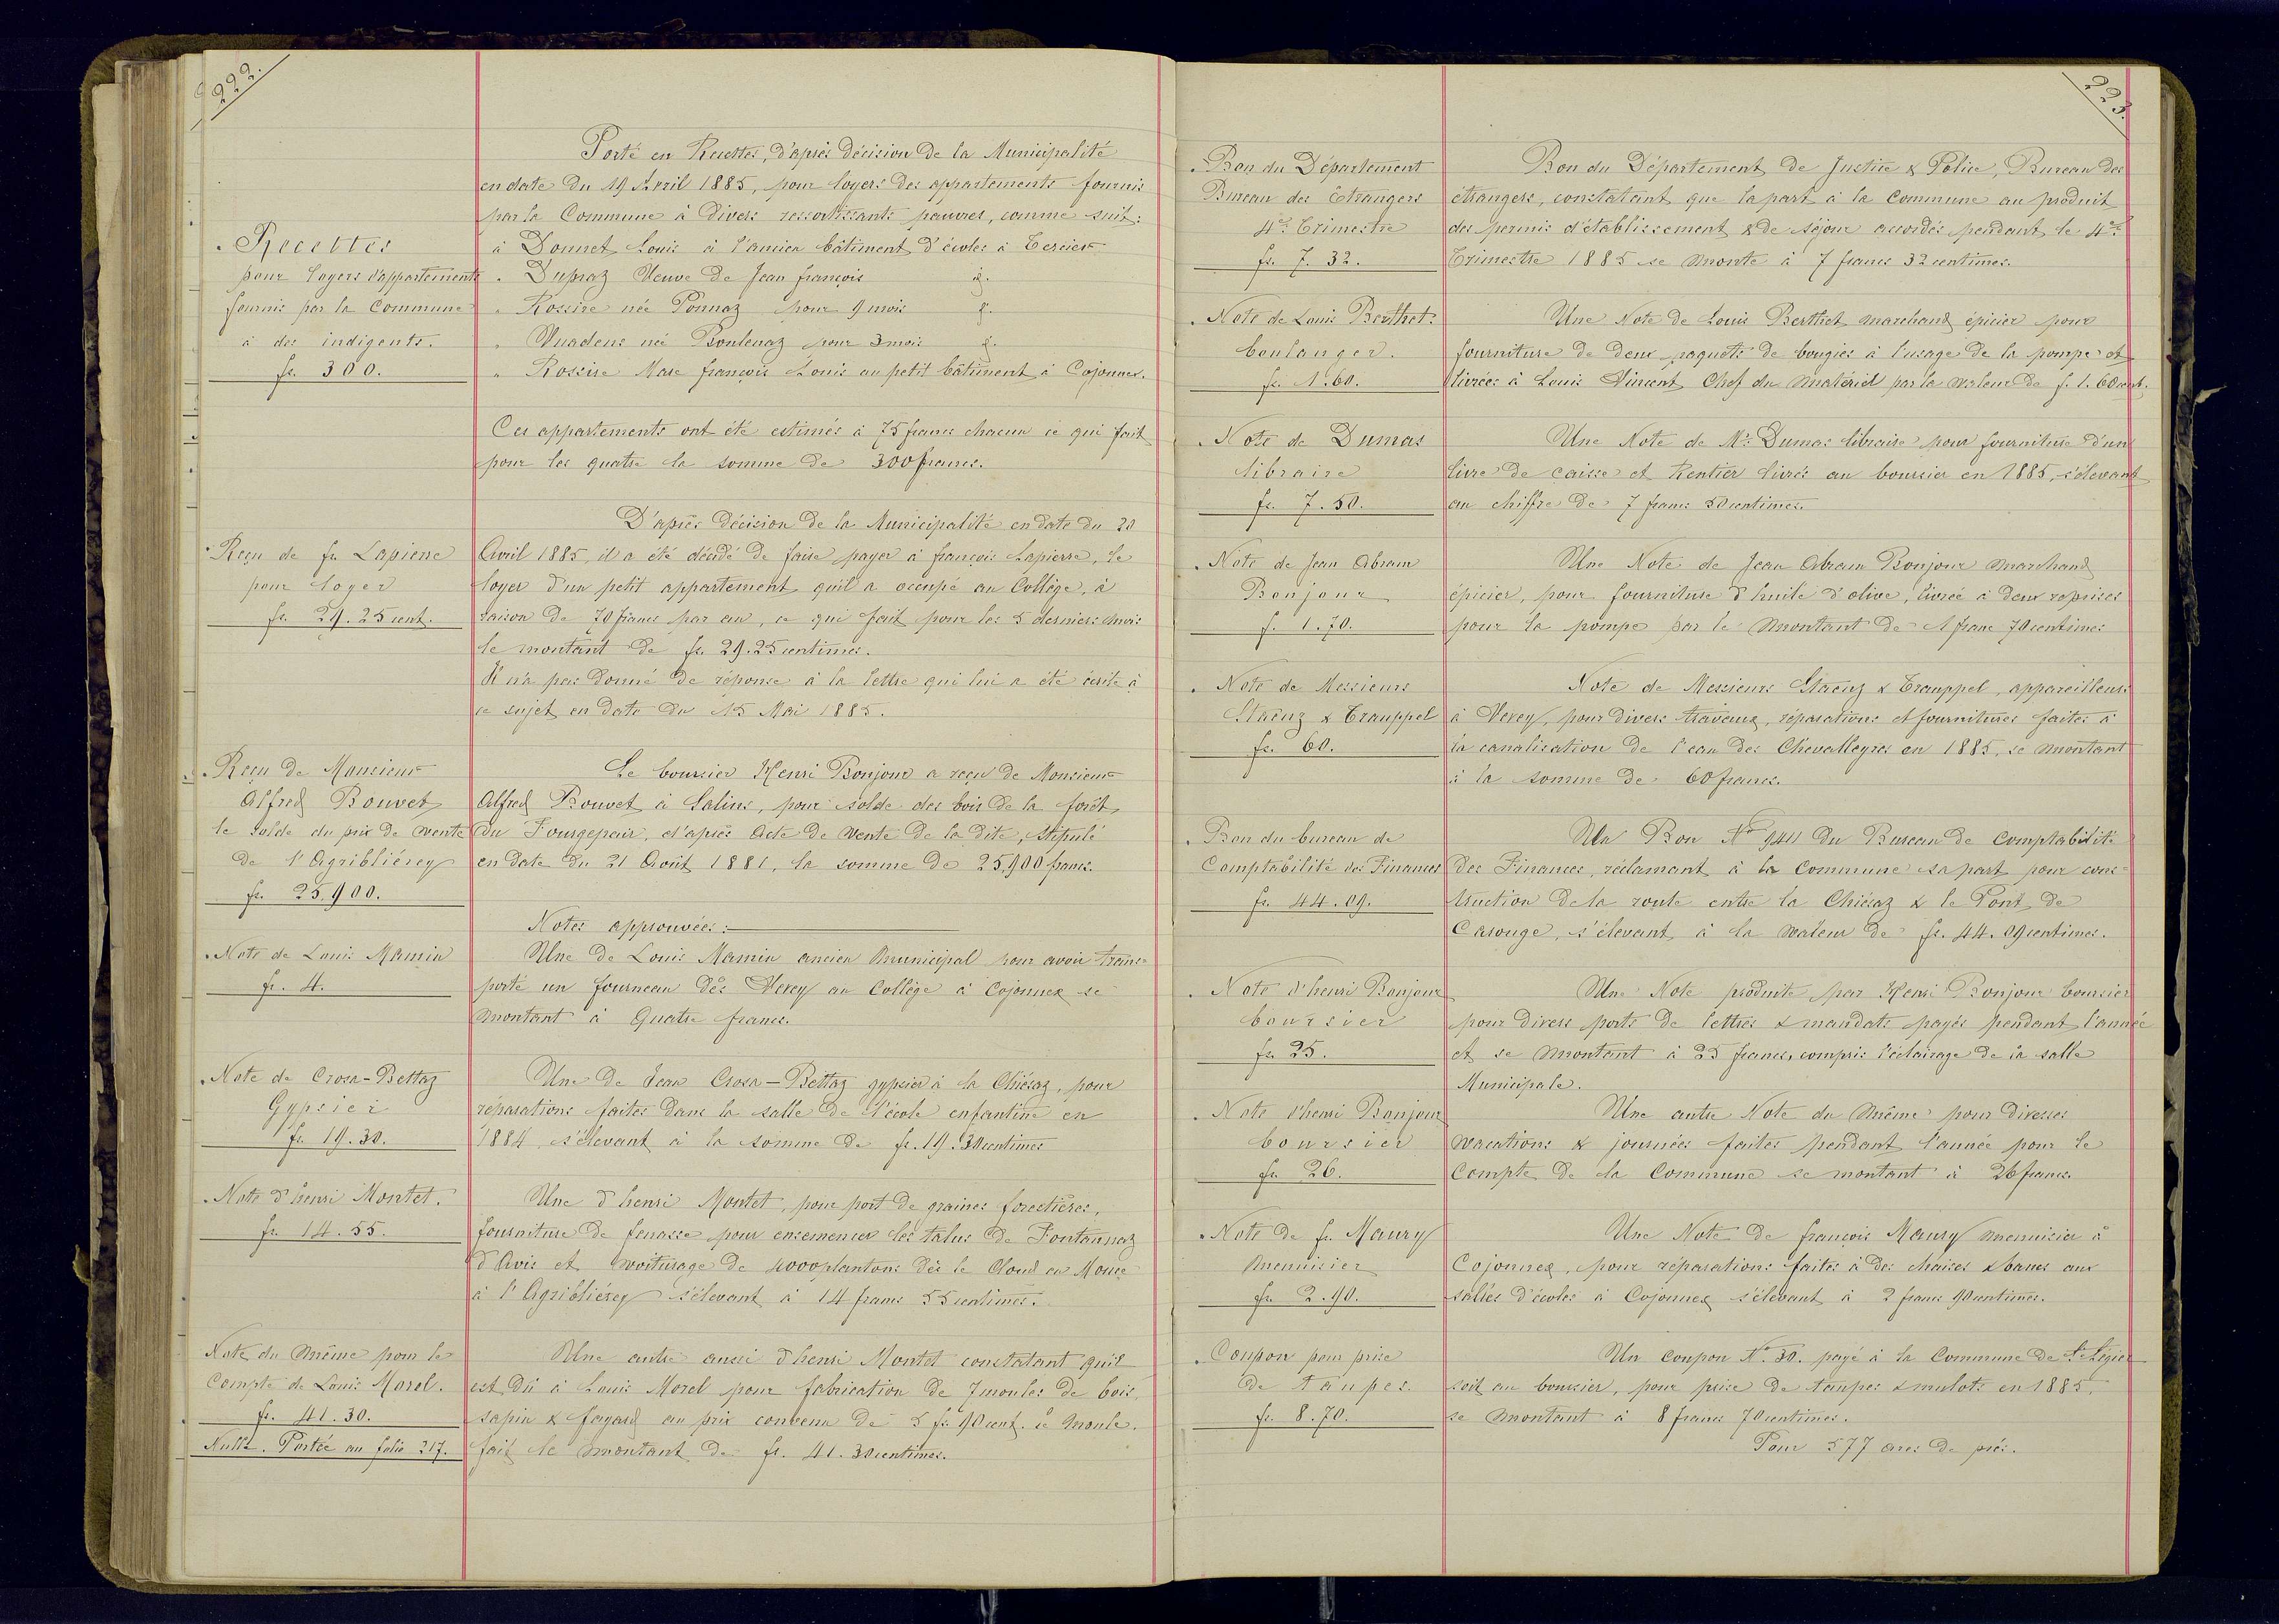 222.
Porté en Recettes, d'après décision de la Municipalité
en date du 19 Avril 1885, pour loyers des appartements fournis
par la Commune à divers ressortissants pauvres, comme suit:
Recettes
pour loyers d'appartements
fournis par la Commune
à des indigents.
fr. 300.
à Donnet Louis à l'ancien bâtiment d'écoles à Tercier
" Dupraz Veuve de Jean françois id.
" Rossire née Ponnaz pour 9 mois id.
" née Bontenaz pour 3 mois id.
" Rossire Marc françois Louis au petit bâtiment à Cojonnex.
Ces appartements ont été estimés à 75 francs chacun ce qui fait
pour les quatre la somme de 300 francs.
Reçu de fs. Lapierre
pour loyer
fr. 29.25 cent.
D'après décision de la Municipalité en date du 20
Avril 1885, il a été décidé de faire payer à françois Lapierre, le
loyer d'un petit appartement qu'il a occupé au Collège, à
raison de 70 francs par an, ce qui fait pour les 5 derniers mois
le montant de fr. 29.25 centimes.
Il n'a pas donné de réponse à la lettre qui lui a été écrite à
ce sujet en date du 15 Mai 1885.
Reçu de Monsieur
Alfred Bouvet
le solde du prix de vente
de l'Agribliérey
fr. 25,900.
Le boursier Henri Bonjour a reçu de Monsieur
Alfred Bouvet à Salins, pour solde des bois de la forêt
du Fourgepair, d'après Acte de vente de la dite, stipulé
en date du 21 Août 1881, la somme de 25,900 francs.
Notes approuvées:
Note de Louis Mamin
fr. 4.
Une de Louis Mamin ancien Municipal pour avoir trans=
porté un fourneau dès Vevey au Collège à Cojonnex se
montant à Quatre francs.
Note de Crosa-Bettaz
Gypsier
fr. 19.30.
Une de Jean Crosa-Bettaz gypsier à la Chiésaz, pour
réparations faites dans la salle de l'école enfantine en
1884, s'élevant à la somme de fr. 19.30 centimes
Note d'henri Montet.
fr. 14.55.
Une d'henri Montet, pour port de graines forestières,
fourniture de fenasse pour ensemencer les talus de Fontannaz
d'Avis et voiturage de 4000 plantons dès le Cloud en Monce
à l'Agribliérey s'élevant à 14 francs 55 centimes.
Note du même pour le
Compte de Louis Morel.
fr. 41.30.
Nulle. Portée au folio 217.
Une autre aussi d'henri Montet constatant qu'il
est dû à Louis Morel pour fabrication de 7 moules de bois,
sapin & fayard au prix convenu de 5 fr. 90 cent. le moule.
fait le montant de fr. 41.30 centimes.
223.
Bon du Département
Bureau des Etrangers
4e. Trimestre
fr. 7.32.
Bon du Département de Justice & Police, Bureau des
étrangers, constatant que la part à la Commune au produit
des permis d'établissement & de séjour accordés pendant le 4e.
Trimestre 1885 se monte à 7 francs 32 centimes.
Note de Louis Berthet.
boulanger.
fr. 1.60.
Une Note de Louis Berthet marchand épicier pour
fourniture de deux paquets de bougies à l'usage de la pompe et
livrées à Louis Vincent Chef du matériel par la valeur de f. 1.60 cent.
Note de Dumas
libraire
fr. 7.50.
Une Note de Mr. Dumas libraire pour fourniture d'un
livre de caisse et Rentier livrés au boursier en 1885, s'élevant
au chiffre de 7 francs 50 centimes.
Note de Jean Abram
Bonjour
f. 1.70.
Une Note de Jean Abram Bonjour marchand
épicier, pour fourniture d'huile d'olive, livrée à deux reprises
pour la pompe par le montant de 1 franc 70 centimes
Note de Messieurs
Staenz & Trauppel
fr. 60.
Note de Messieurs Staenz & Trauppel, appareilleurs
à Vevey, pour divers travaux, réparations et fournitures faites à
la canalisation de l'eau des Chevalleyres en 1885, se montant
à la somme de 60 francs.
Bon du bureau de
Comptabilité des Finances
fr. 44.09.
Un Bon No 941 du Bureau de Comptabilité
des Finances, réclamant à la Commune sa part pour cons=
truction de la route entre la Chiésaz & le Pont de
Carouge, s'élevant à la valeur de fr. 44.09 centimes.
Note d'henri Bonjour
boursier
fr. 25.
Une Note produite par Henri Bonjour boursier
pour divers ports de lettres & mandats payés pendant l'année
et se montant à 25 francs, compris l'éclairage de la salle
Municipale.
Note d'henri Bonjour
boursier
fr. 26.
Une autre Note du même pour diverses
vacations & journées faites pendant l'année pour le
Compte de la Commune se montant à 26 francs.
Note de fs. Maury
menuisier
fr. 2.90.
Une Note de françois Maury menuisier à
Cojonnex, pour réparations faites à des chaises & bancs aux
salles d'écoles à Cojonnex s'élevant à 2 francs 90 centimes.
Coupon pour prise
de taupes.
fr. 8.70.
Un coupon No. 30. payé à la Commune de St. Légier
soit au boursier, pour prise de taupes & mulots en 1885,
se montant à 8 francs 70 centimes.
Pour 577 ares de prés.